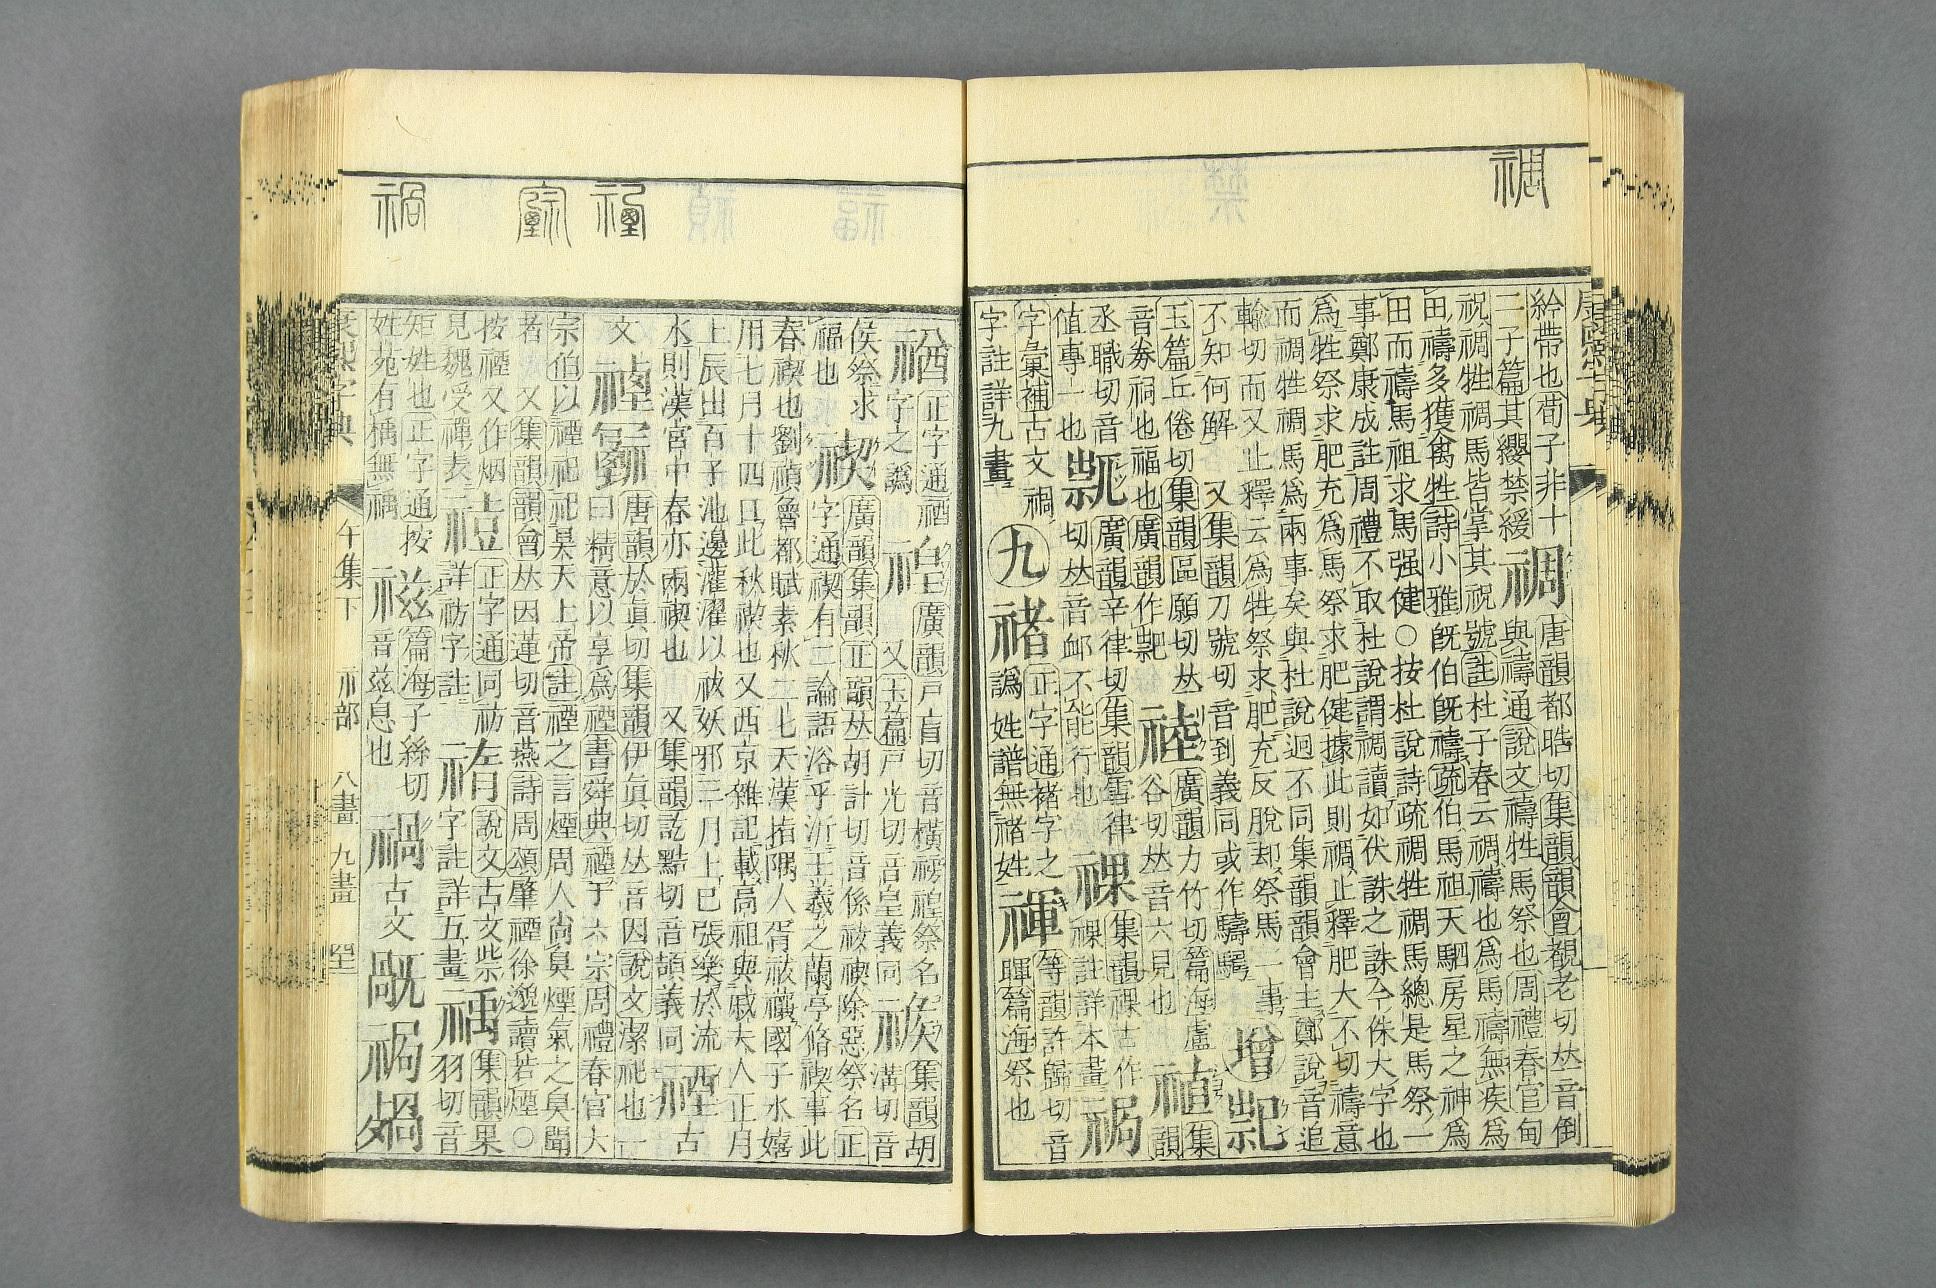 禂
紟帶也荀子非十
二子篇其纓禁緩
禂
唐韻都晧切集韻韻會覩老切𠀤音倒
與禱通說文禱牲馬祭也周禮春官甸
祝禂牲禂馬皆掌其祝號註杜子春云禂禱也爲馬禱無疾爲
田禱多獲禽牲詩小雅旣伯旣禱疏伯馬祖天駟房星之神爲
田而禱馬祖求馬强健○按杜說詩疏禂牲禂馬總是馬祭一
事鄭康成註周禮不取杜說謂禂讀如伏誅之誅今侏大字也
爲牲祭求肥充爲馬祭求肥健據此則禂止釋肥大不切禱意
而禂牲禂馬爲兩事矣與杜說迥不同集韻韻會主鄭說音追
輸切而又止釋云爲牲祭求肥充反脫却祭馬一事
不知何解
又集韻刀號切音到義同或作驌騳
增
玉篇丘倦切集韻區願切𠀤
音劵祠也福也廣韻作
廣韻力竹切篇海盧
谷切𠀤音六見也
禃
集韻
丞職切音
值專一也
廣韻辛律切集韻雪律
切𠀤音卹不能行也
祼
集韻祼古作
祼註詳本畫
禍
字彙補古文禂
字註詳九畫
九
禇
正字通褚字之
譌姓譜無禇姓
禈
等韻許歸切音
暉篇海祭也
禉
正字通禋
字之譌
禞
廣韻戸盲切音橫禜禞祭名
又玉篇戸光切音皇義同
䄛
集韻胡
溝切音
侯祭求
福也
禊
廣韻集韻正韻𠀤胡計切音係祓禊除惡祭名正
字通禊有二論語浴乎沂王羲之蘭亭脩禊事此
春禊也劉禎魯都賦素秋二七天漢指隅人胥祓禳國子水嬉
用七月十四日此秋禊也又西京雜記載高祖與戚夫人正月
上辰出百子池邊灌濯以祓妖邪三月上巳張樂於流
水則漢宮中春亦兩禊也
又集韻訖黠切音頡義同
古
文
禋
唐韻於眞切集韻伊眞切𠀤音因說文潔祀也一
曰精意以享爲禋書舜典禋于六宗周禮春官大
宗伯以禋祀祀昊天上帝註禋之言煙周人尚臭煙氣之臭聞
者
又集韻韻會𠀤因蓮切音燕詩周頌肇禋徐邈讀若煙○
按禋又作烟
見魏受禪表
正字通同祊
詳祊字註
說文古文祡
字註詳五畫
禹
集韻果
羽切音
矩姓也正字通按
姓苑有楀無䄔
禌
篇海子絲切
音玆息也
禍
古文
康熙字典
午集下
示部
八畫
九畫